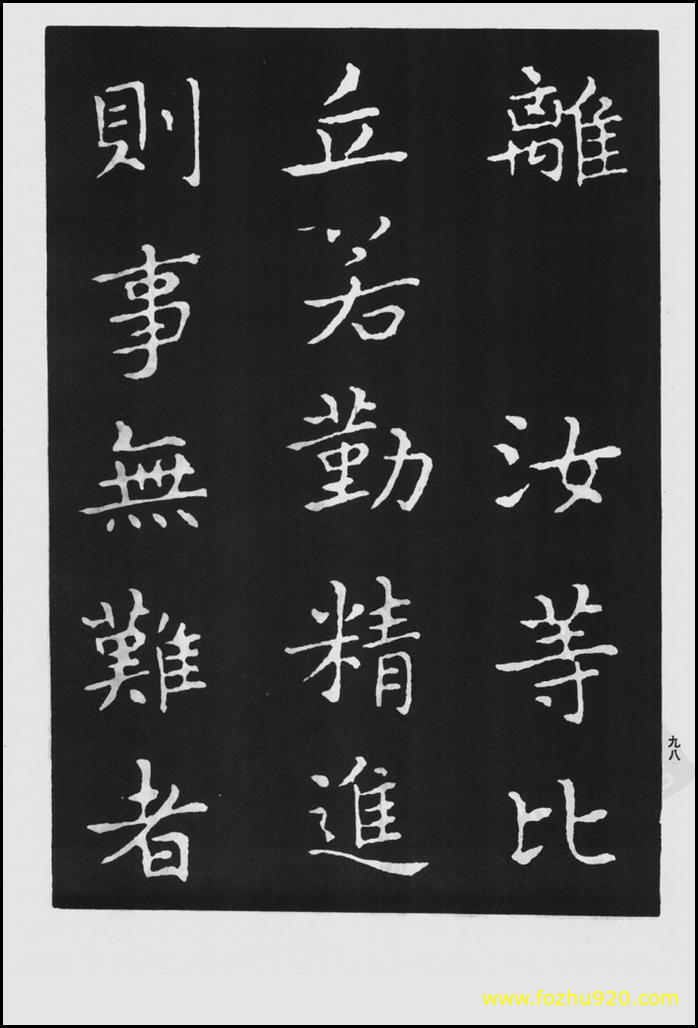 離 汝等比
丘若勤精進
則事無難者
九八
www.fozhu920.com